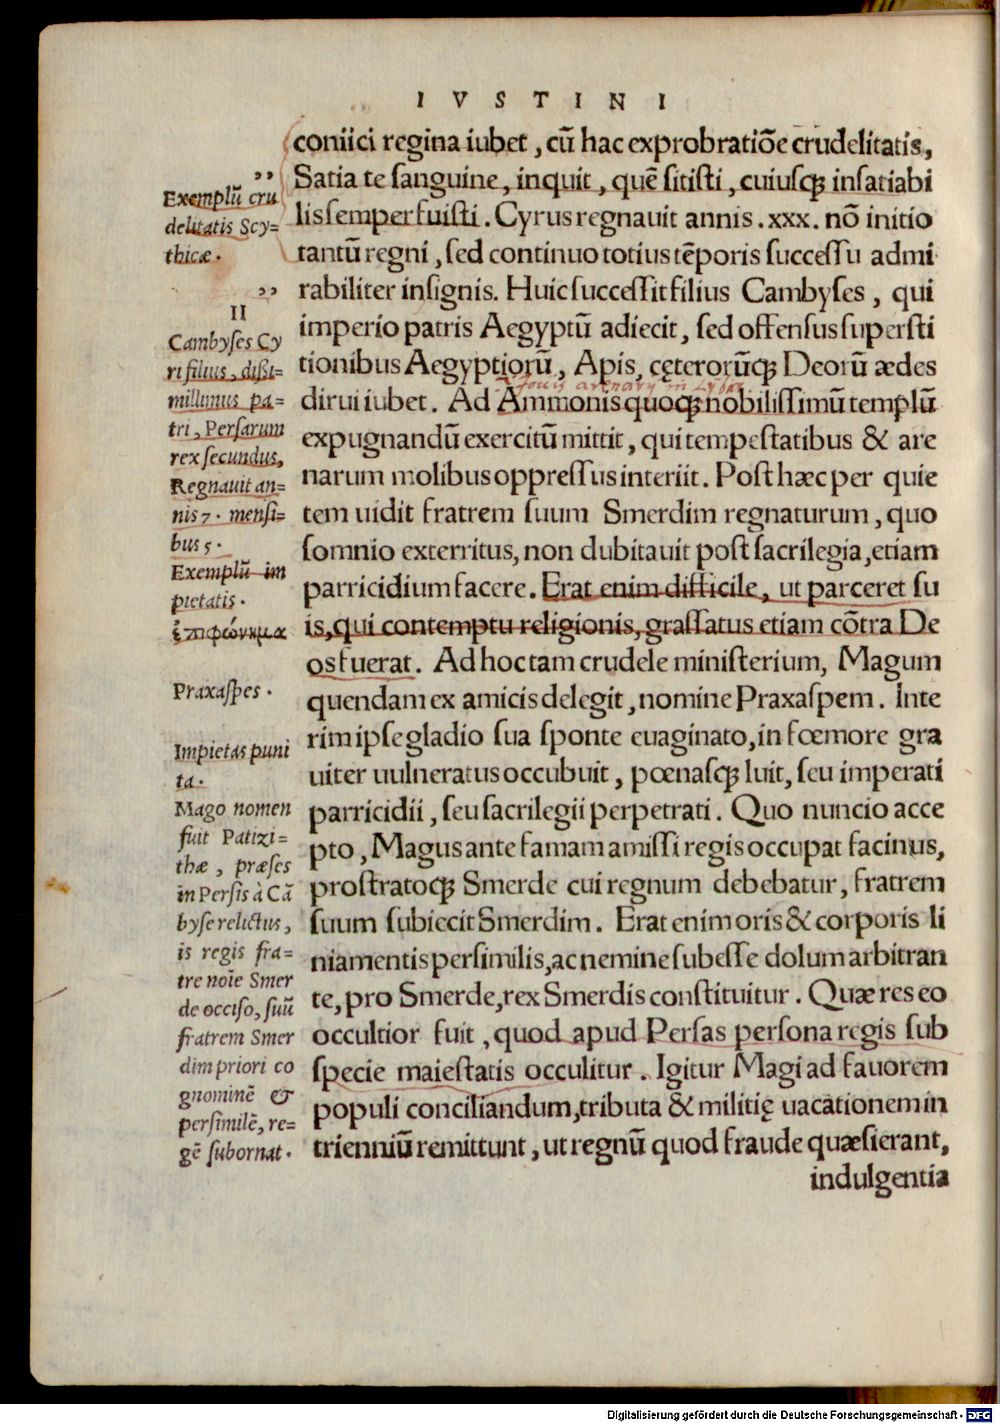 IVSTINI
coniici regina iubet, cū hac exprobratiōe crudelitatis,
Satia te sanguine, inquit, quē sitisti, cuiusq; insatiabi
lis semper fuisti. Cyrus regnauit annis .xxx. nō initio
tantū regni, sed continuo totius tēporis successu admi
rabiliter insignis. Huic successit filius Cambyses, qui
imperio patris Aegyptū adiecit, sed offensus supersti
tionibus Aegyptiorū, Apis, cęterorūq; Deorū ædes
dirui iubet. Ad Ammonis quoq; nobilissimū templū
expugnandū exercitū mittit, qui tempestatibus & are
narum molibus oppressus interiit. Post hæc per quie
tem uidit fratrem suum Smerdim regnaturum, quo
somnio exterritus, non dubitauit post sacrilegia, etiam
parricidium facere. Erat enim difficile, ut parceret su
is, qui contemptu religionis, grassatus etiam cōtra De
os fuerat. Ad hoc tam crudele ministerium, Magum
quendam ex amicis delegit, nomine Praxaspem. Inte
rim ipse gladio sua sponte euaginato, in fœmore gra
uiter uulneratus occubuit, pœnasq; luit, seu imperati
parricidii, seu sacrilegii perpetrati. Quo nuncio acce
pto, Magus ante famam amissi regis occupat facinus,
prostratoq; Smerde cui regnum debebatur, fratrem
suum subiecit Smerdim. Erat enim oris & corporis li
niamentis persimilis, ac nemine subesse dolum arbitran
te, pro Smerde, rex Smerdis constituitur. Quæ res eo
occultior fuit, quod apud Persas persona regis sub
specie maiestatis occulitur. Igitur Magi ad fauorem
populi conciliandum, tributa & militię uacationem in
trienniū remittunt, ut regnū quod fraude quæsierant,
indulgentia
,,
Exemplū cru
delitatis Scy=
thicæ.
,,
II
Cambyses Cy
ri filius, dissi=
millimus pa=
tri, Persarum
rex secundus,
Regnauit an=
nis 7. mensi=
bus 5.
Exemplū im
pietatis.
ἐπιφώνημα
Praxaspes.
Impietas puni
ta.
Mago nomen
fuit Patizi=
thæ, præses
in Persis à Cā
byse relictus,
is regis fra=
tre noīe Smer
de occiso, suū
fratrem Smer
dim priori co
gnominē &
persimilē, re=
gē subornat.
Digitalisierung gefördert durch die Deutsche Forschungsgemeinschaft - DFG